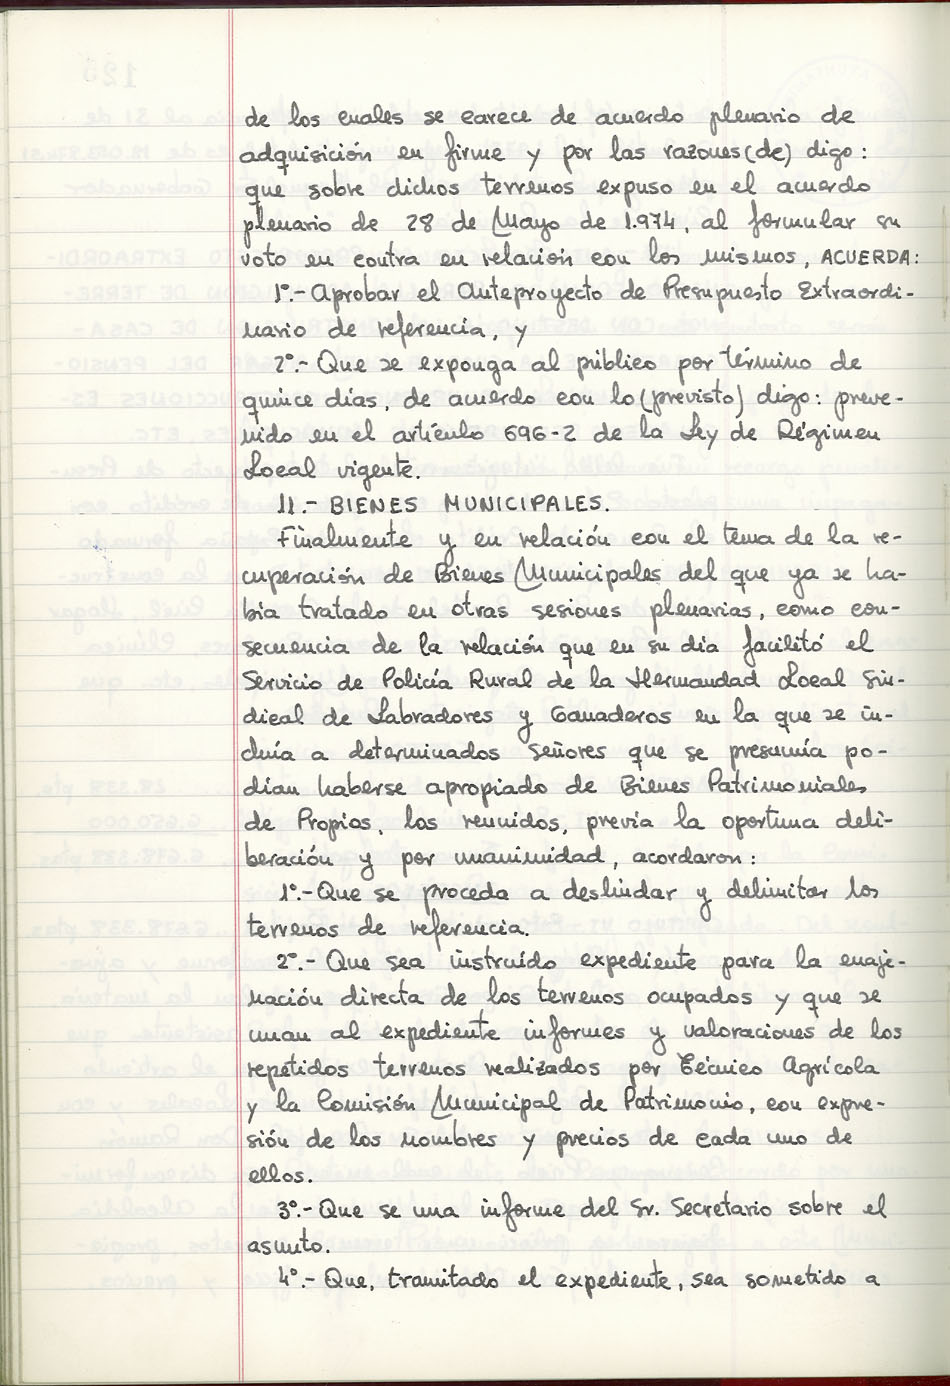 de los cuales se carece de acuerdo plenario de
adquisición en firme y por las razones (de) digo:
que sobre dichos terrenos expuso en el acuerdo
plenario de 28 de Mayo de 1.974, al formular su
voto en contra en relación con los mismos, ACUERDA:
1º.- Aprobar el Anteproyecto de Presupuesto Extraordi-
nario de referencia, y
2º.- Que se exponga al público por término de
quince días, de acuerdo con lo (previsto) digo: preve-
nido en el artículo 696-2 de la Ley de Régimen
Local vigente.
11.- BIENES MUNICIPALES.
Finalmente y en relación con el tema de la re-
cuperación de Bienes Municipales del que ya se ha-
bía tratado en otras sesiones plenarias, como con-
secuencia de la relación que en su día facilitó el
Servicio de Policía Rural de la Hermandad Local Sin-
dical de Labradores y Ganaderos en la que se in-
cluía a determinados señores que se presumía po-
dían haberse apropiado de Bienes Patrimoniales
de Propios, los reunidos, previa la oportuna deli-
beración y por unanimidad, acordaron:
1º.- Que se proceda a deslindar y delimitar los
terrenos de referencia.
2º.- Que sea instruído expediente para la enaje-
nación directa de los terrenos ocupados y que se
unan al expediente informes y valoraciones de los
repetidos terrenos realizados por Técnico Agrícola
y la Comisión Municipal de Patrimonio, con expre-
sión de los nombres y precios de cada uno de
ellos.
3º.- Que se una informe del Sr. Secretario sobre el
asunto.
4º.- Que, tramitado el expediente, sea sometido a